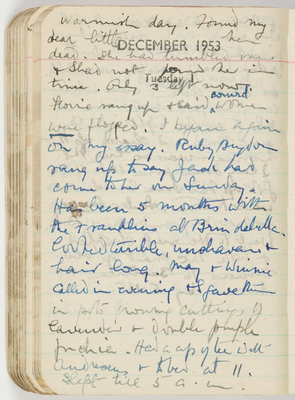 Warmish day. Found my
dear little hen
DECEMBER 1953
dead. She had tumbled over
Tuesday 1
& I had not found her in
time. Only 3 left now.
Florrie rang up & said Women
were flopped. I began again
on my essay. Ruby Brydon
rang up to say Jack had
come to her on Sunday.
Has been 5 months with
the Franklins at Brindabella.
Looked terrible, unshaven &
hair long. May & Winnie
called in evening & I gave them
in pots growing cuttings of
lavender & double purple
fuchia. Had a cup of tea with
& to bed at 11.
Slept till 5 a.m.